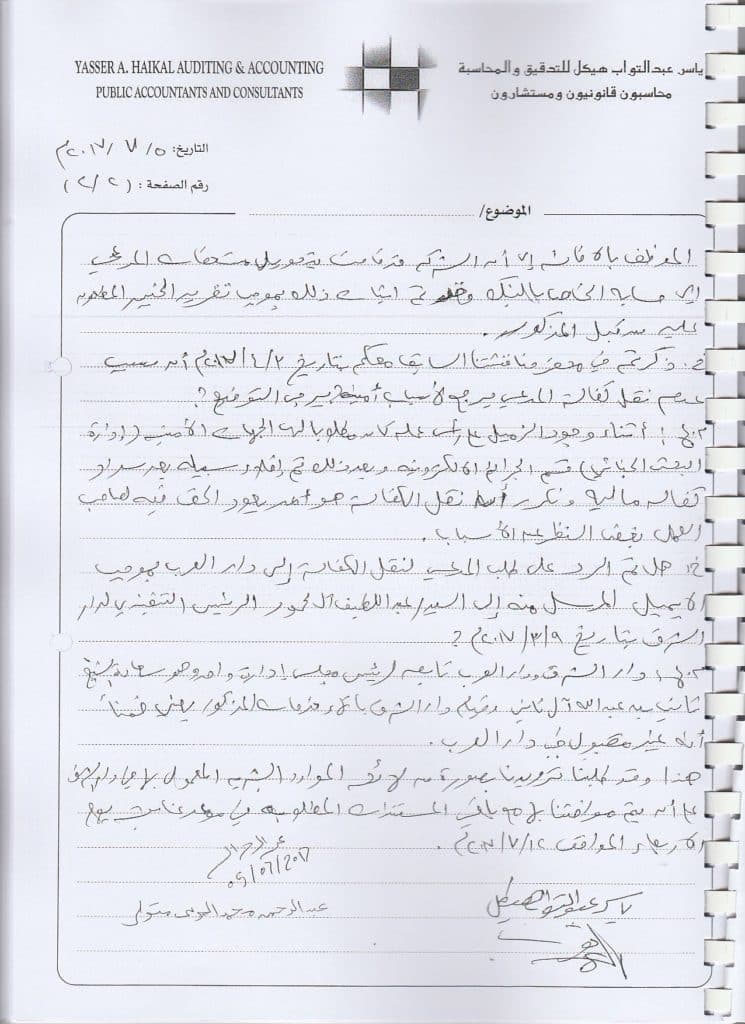 YASSER A. HAIKAL AUDITING & ACCOUNTING
PUBLIC ACCOUNTANTS AND CONSULTANTS
ياسر عبدالتواب هيكل للتدقيق والمحاسبة
محاسبون قانونيون ومستشارون
التاريخ: ٥ / ٧ / ٢٠١٧م
رقم الصفحة: (٢/٢)
الموضوع/
الموظف بالإضافة إلى أن الشركة قد قامت بتحويل مستحقات المدعي
إلى حسابه الخاص بالبنك وقد تم اثبات ذلك بموجب تقرير الخبير المطلوبة
عليه من قبل المذكور.
خ: ذكرتم في محضر مناقشتنا السابق معكم بتاريخ ٢/٤/٢٠١٧م أن سبب
عدم نقل كفالة المدعي يرجع لأسباب أمنية يرجى التوضيح؟
أثناء وجود الزميل على رأس عمله كان مطلوبا لدى الجهات الأمنية (إدارة
البحث الجنائي) قسم الجرائم الالكترونية وبعد ذلك تم إخلاء سبيله بعد سداد
كفالة مالية ونكرر أن نقل الكفالة هو أمر يعود الحق فيه لصاحب
العمل بغض النظر عن الأسباب.
خ: هل تم الرد على طلب المدعي لنقل الكفالة إلى دار العرب بموجب
الايميل المرسل منه إلى السيد/ عبد اللطيف آل محمود الرئيس التنفيذي لدار
الشرق بتاريخ ٩/٣/٢٠١٧م؟
دار الشرق ودار العرب تابعة لرئيس مجلس إدارة واحد وهو سعادة الشيخ
ثاني بن عبدالله آل ثاني وقيام دار الشرق بإنهاء خدمات المذكور يعني ضمناً
أنه غير مقبول في دار العرب.
هذا وقد طلبنا تزويدنا بصورة من لائحة الموارد البشرية المعمول بها
على أن يتم موافاتنا بباقي المستندات المطلوبة في موعد غايته يوم
الاربعاء الموافق ١٢/٧/٢٠١٧م.
05/07/2017
ياسر عبدالتواب هيكل
عبدالرحمن محمد متولي